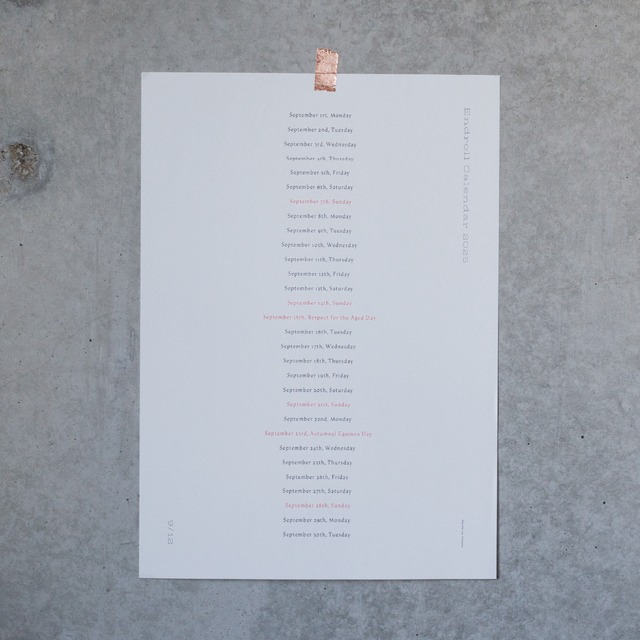 September 1st, Monday
September 2nd, Tuesday
September 3rd, Wednesday
September 4th, Thursday
September 5th, Friday
September 6th, Saturday
September 7th, Sunday
September 8th, Monday
September 9th, Tuesday
September 10th, Wednesday
September 11th, Thursday
September 12th, Friday
September 13th, Saturday
September 14th, Sunday
September 15th, Respect for the Aged Day
September 16th, Tuesday
September 17th, Wednesday
September 18th, Thursday
September 19th, Friday
September 20th, Saturday
September 21st, Sunday
September 22nd, Monday
September 23rd, Autumnal Equinox Day
September 24th, Wednesday
September 25th, Thursday
September 26th, Friday
September 27th, Saturday
September 28th, Sunday
September 29th, Monday
September 30th, Tuesday
Endroll Calendar 2025
9/12